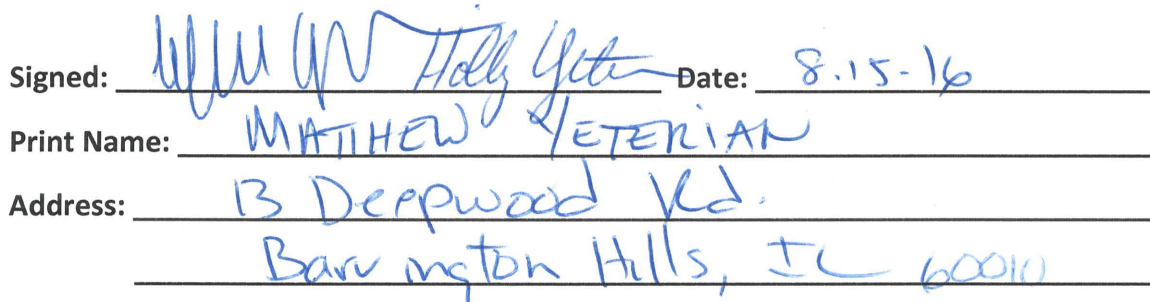 Signed: Holly Yeter Date: 8.15-16
Print Name: MATTHEW YETERIAN
Address: 13 Deepwood Rd.
Barrington Hills, IL 60010